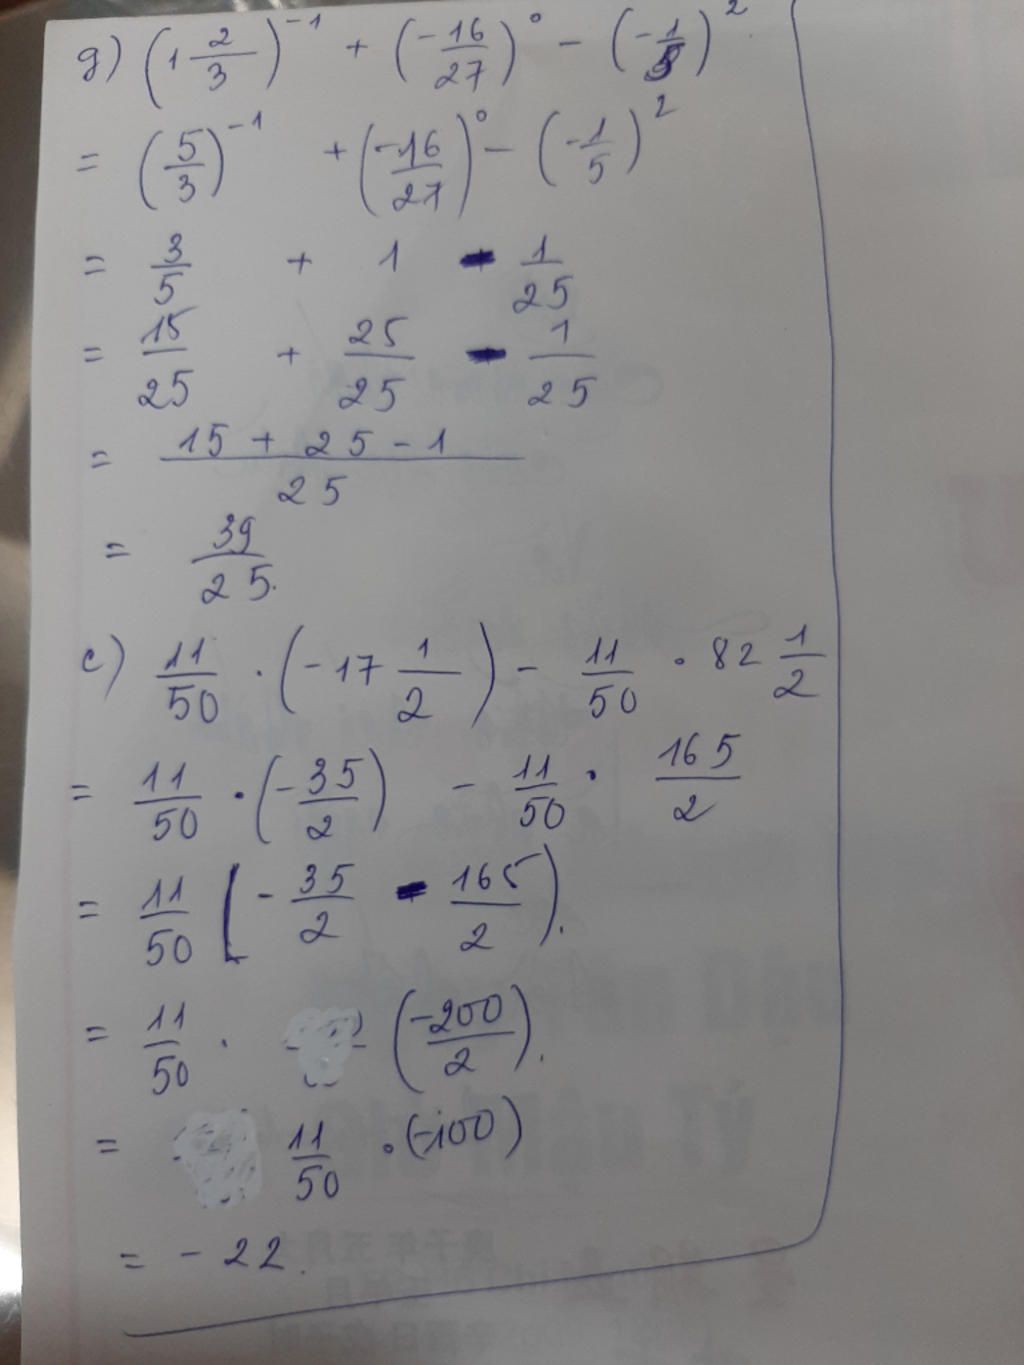 g) (1 2/3)^-1 + (-16/27)^0 - (-1/5)^2
= (5/3)^-1 + (-16/27)^0 - (-1/5)^2
= 3/5 + 1 - 1/25
= 15/25 + 25/25 - 1/25
= (15 + 25 - 1)/25
= 39/25.
c) 11/50 . (-17 1/2) - 11/50 . 82 1/2
= 11/50 . (-35/2) - 11/50 . 165/2
= 11/50 [-35/2 - 165/2).
= 11/50 . (-200/2).
= 11/50 . (-100)
= -22.